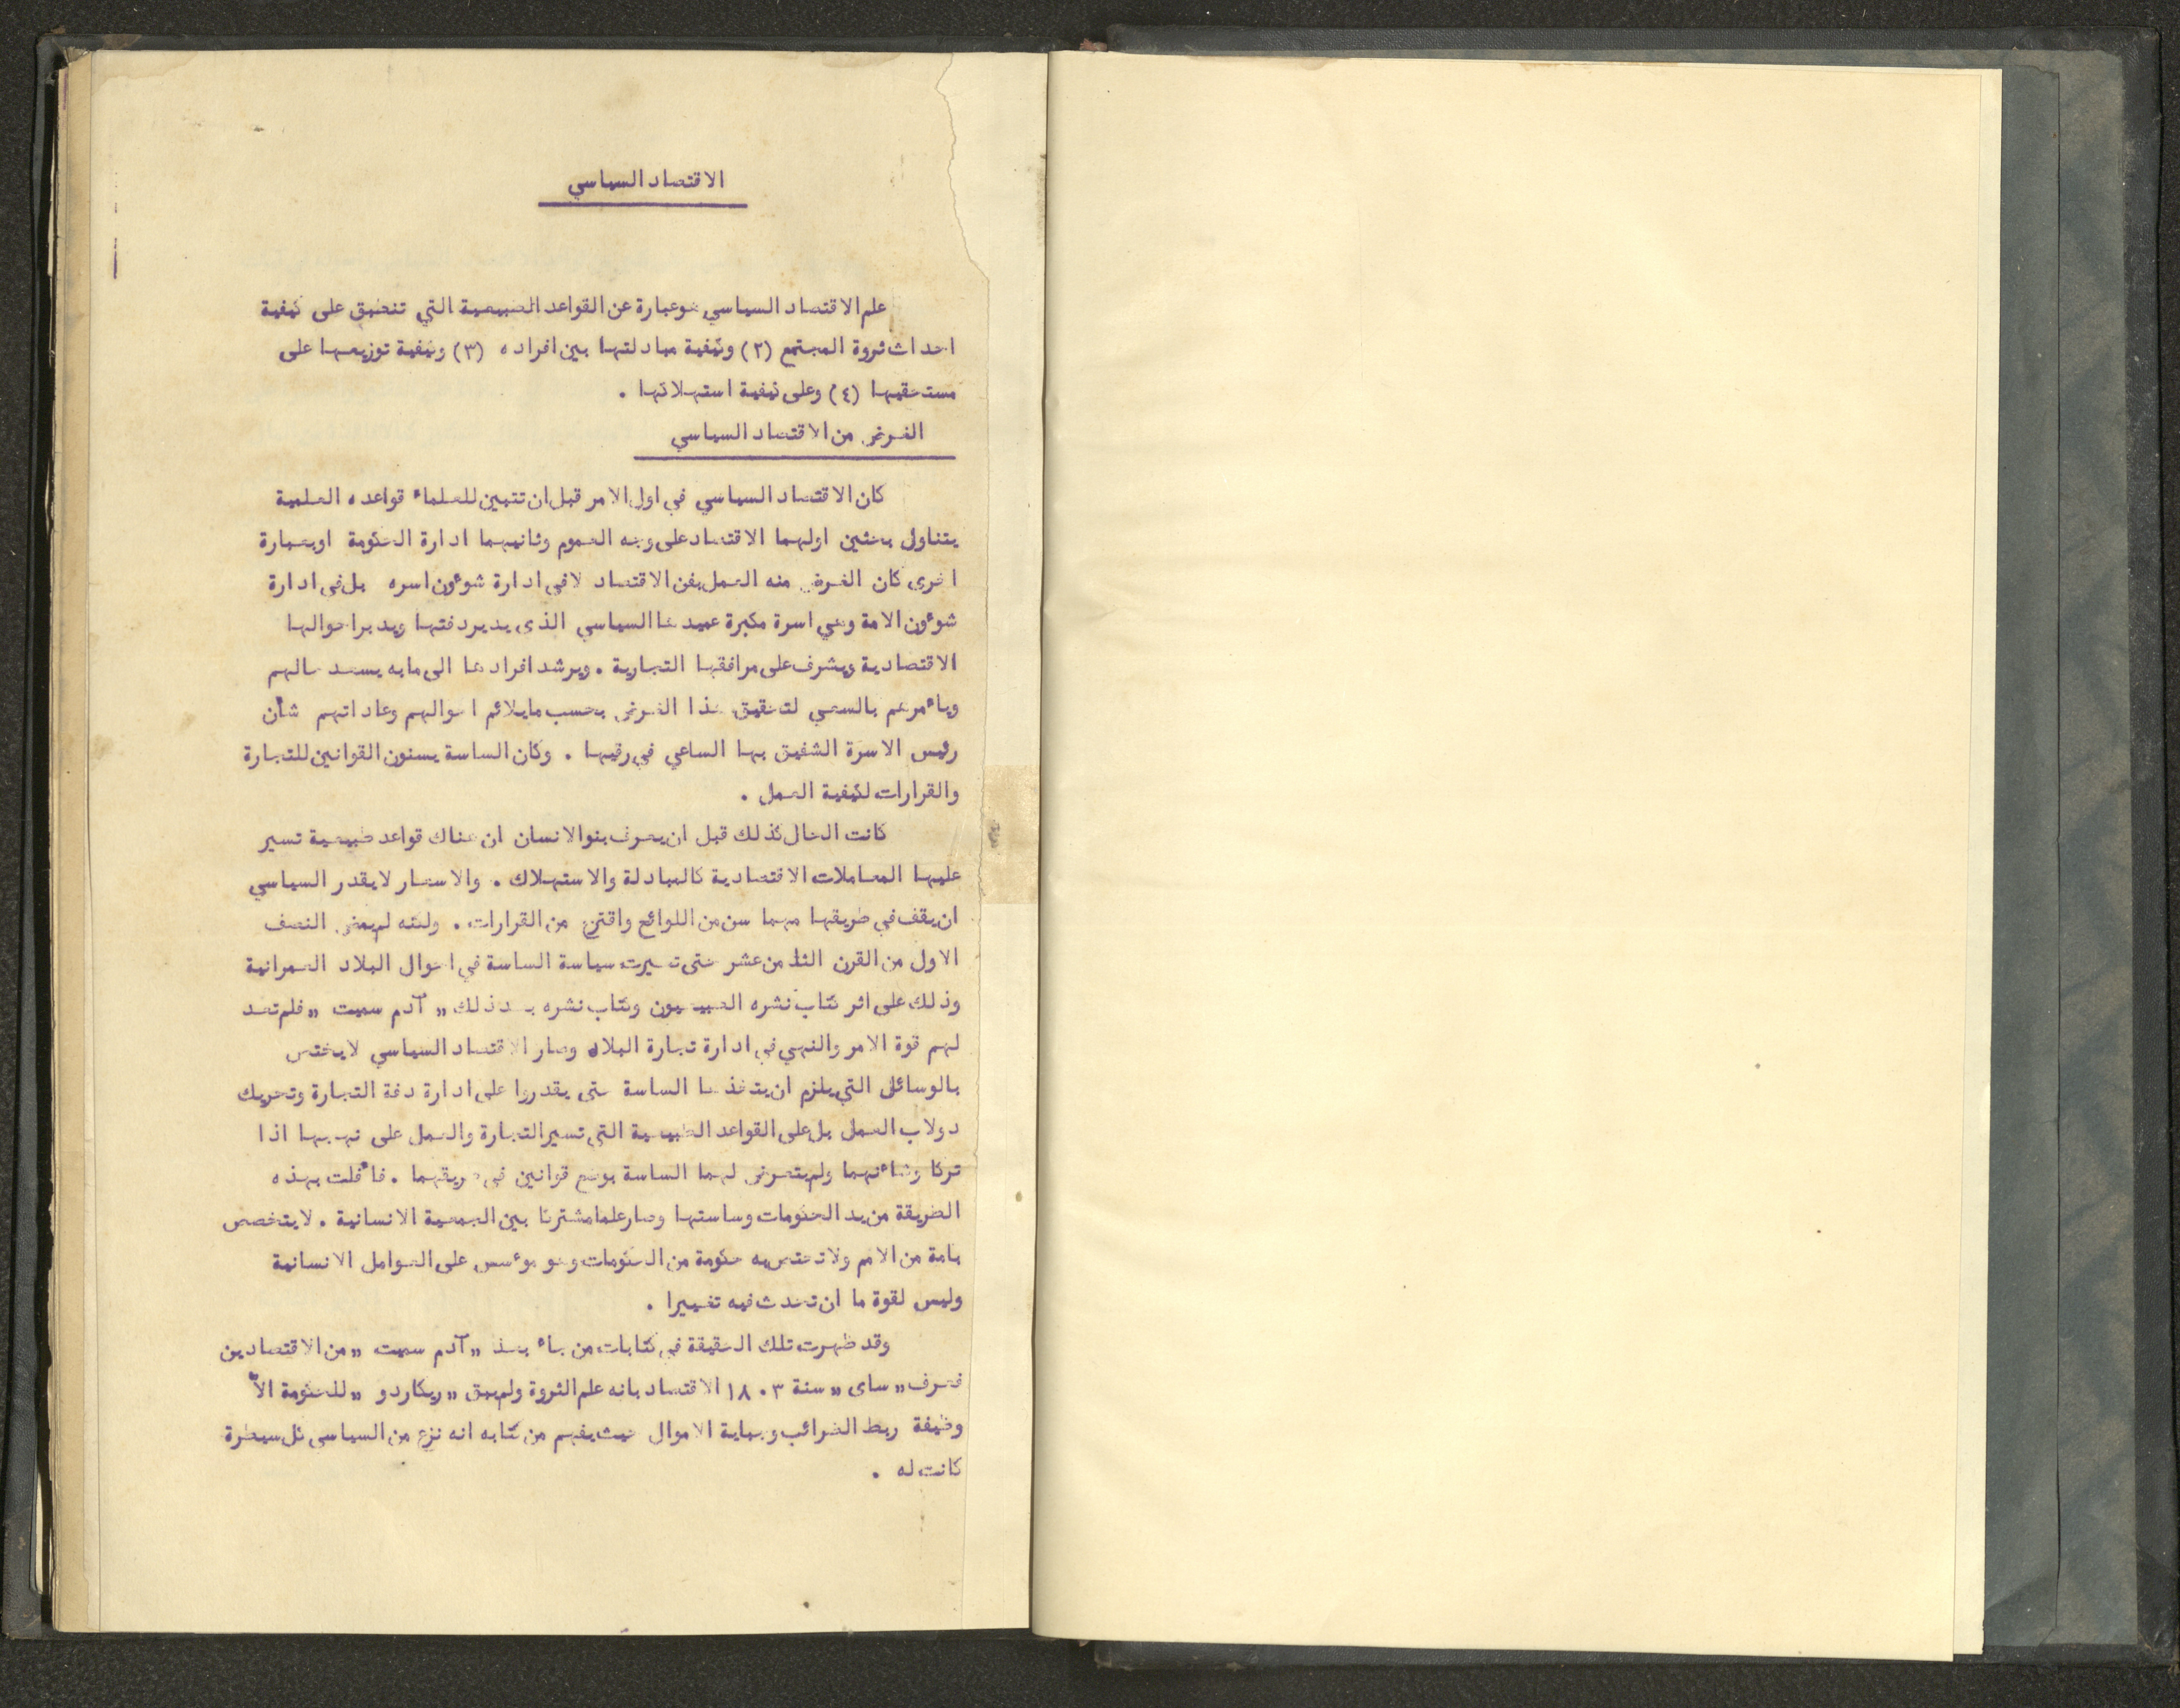 الاقتصاد السياسي
علم الاقتصاد السياسي هو عبارة عن القواعد الطبيعية التي تنطبق على كيفية
احداث ثروة المجتمع (٢) وكيفية مبادلتها بين افراده (٣) وكيفية توزيعها على
مستحقيها (٤) وعلى كيفية استهلاكها .
الغرض من الاقتصاد السياسي
كان الاقتصاد السياسي في اول الامر قبل ان تتبين للعلماء قواعده العلمية
يتناول بحثين اولهما الاقتصاد على وجه العموم وثانيهما ادارة الحكومة او بعبارة
اخرى كان الغرض منه العمل بفن الاقتصاد لا في ادارة شوءون اسره بل في ادارة
شوءون الامة وهي اسرة مكبرة عميدها السياسي الذى يدير دفتها ويدبر احوالها
الاقتصادية ويشرف على مرافقها التجارية . ويرشد افرادها الى ما به يسعد حالهم
وياءمرهم بالسعي لتحقيق هذا الغرض بحسب ما يلائم احوالهم وعاداتهم شأن
رئيس الاسرة الشفيق بها الساعي في رقيها . وكان الساسة يسنون القوانين للتجارة
والقرارات لكيفية العمل .
كانت الحال كذلك قبل ان يعرف بنو الانسان ان هناك قواعد طبيعية تسير
عليها المعاملات الاقتصادية كالمبادلة والاستهلاك . والاسعار لا يقدر السياسي
ان يقف في طريقها مهما سن من اللوائح واقترح من القرارات . ولكنه لم يمض النصف
الاول من القرن الثامن عشر حتى تغيرت سياسة الساسة في احوال البلاد العمرانية
وذلك على اثر كتاب نشره الطبيعيون وكتاب نشره بعد ذلك „ آدم سميت „ فلم تعد
لهم قوة الامر والنهي في ادارة تجارة البلاد وصار الاقتصاد السياسي لا يختص
بالوسائل التي يلزم ان يتخذها الساسة حتى يقدروا على ادارة دفة التجارة وتحريك
دولاب العمل بل على القواعد الطبيعية التي تسير التجارة والعمل على نهجها اذا
تركا وشاءنهما ولم يتعرض لهما الساسة بوضع قوانين في طريقهما . فاءفلت بهذه
الطريقة من يد الحكومات وساستها وصار علما مشتركا بين الجمعية الانسانية . لا يتخصص
بامة من الامم ولا تختص به حكومة من الحكومات وهو موءسس على العوامل الانسانية
وليس لقوة ما ان تحدث فيه تغييرا .
وقد ظهرت تلك الحقيقة في كتابات من جاء بعد „ آدم سميت „ من الاقتصادين
فعرف „ ساى „ سنة ١٨٠٣ الاقتصاد بانه علم الثروة ولم يبق „ ريكاردو „ للحكومة الا
وظيفة ربط الضرائب وجباية الاموال حيث يفهم من كتابه انه نزع من السياسي كل سيطرة
كانت له .